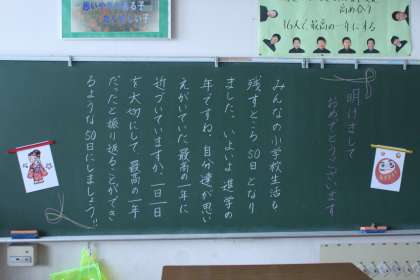 思いやりがある子
たくましい子
高め合う
16人で最高の一年にする
明けまして
おめでとうございます
みんなの小学校生活も
残すところ50日となり
ました。いよいよ進学の
年ですね。自分達が思い
えがいていた最高の一年に
近づいていますか。一日一日
を大切にして最高の一年
だったと振り返ることができ
るような50日にしましょう!!